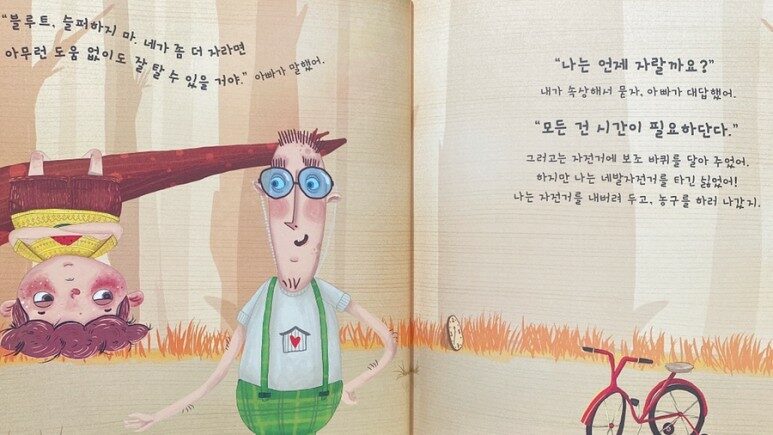 "블루트, 슬퍼하지 마. 네가 좀 더 자라면
아무런 도움 없이도 잘 탈 수 있을 거야." 아빠가 말했어.
"나는 언제 자랄까요?"
내가 속상해서 묻자, 아빠가 대답했어.
"모든 건 시간이 필요하단다."
그러고는 자전거에 보조 바퀴를 달아 주었어.
하지만 나는 네발자전거를 타긴 싫었어!
나는 자전거를 내버려 두고, 농구를 하러 나갔지.